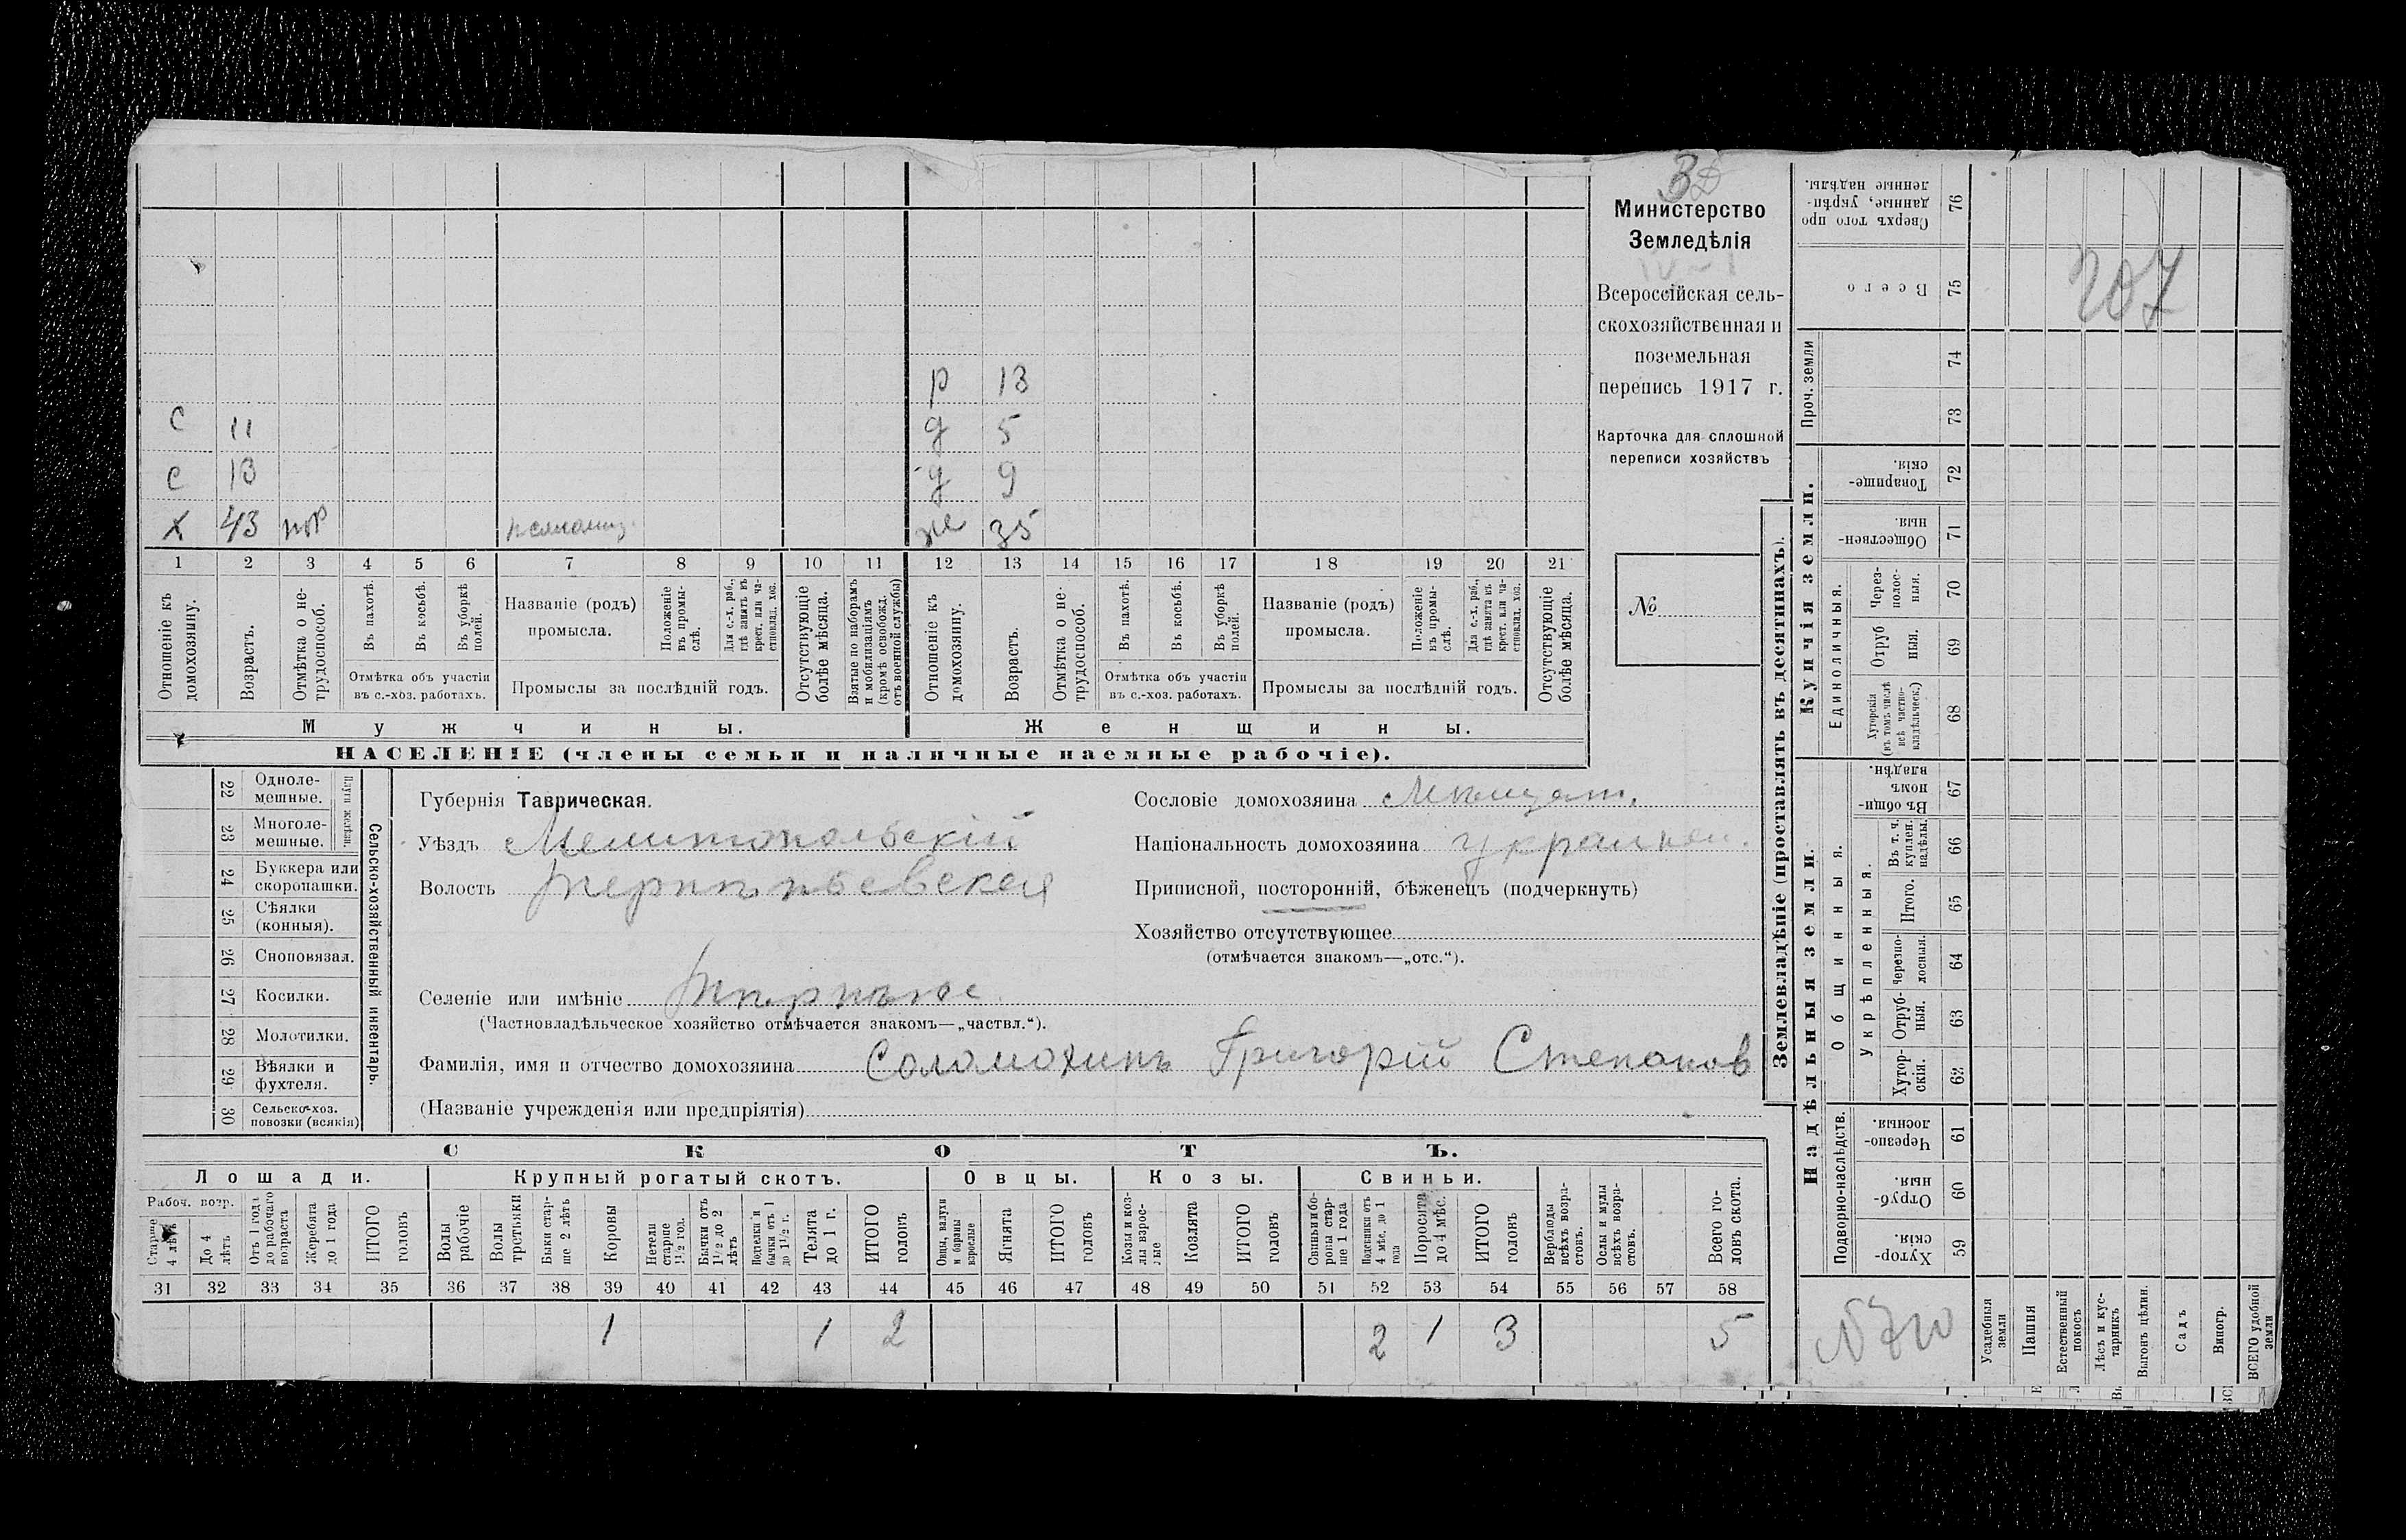 Министерство
Земледѣлія
Всероссійская сель-
скохозяйственная и
поземельная
перепись 1917 г.
Карточка для сплошной
переписи хозяйствъ
№
207
р 13
с 11 д 5
с 13 д 9
х 43 же 35
1 2 3 4 5 6 7 8 9 10 11 12 13 14 15 16 17 18 19 20 21
Отношеніе къ домохозяину.
Возрастъ.
Отмѣтка о не-трудоспособ.
Въ пахотѣ.
Въ косьбѣ.
Въ уборкѣ полей.
Отмѣтка объ участіи
въ с.-хоз. работахъ.
Названіе (родъ)
промысла.
Положеніе въ промы-слѣ.
Для с.-х. раб., гдѣ занятъ въ крест. или ча-стновлад. хоз.
Промыслы за послѣдній годъ.
Отсутствующіе болѣе мѣсяца.
Взятые по наборамъ и мобилизаціямъ (кромѣ освобожд. отъ военной службы)
Отношеніе къ домохозяину.
Возрастъ.
Отмѣтка о не-трудоспособ.
Въ пахотѣ.
Въ косьбѣ.
Въ уборкѣ полей.
Отмѣтка объ участіи
въ с.-хоз. работахъ.
Названіе (родъ)
промысла.
Положеніе въ промы-слѣ.
Для с.-х. раб., гдѣ занята въ крест. или ча-стновлад. хоз.
Промыслы за послѣдній годъ.
Отсутствующіе болѣе мѣсяца.
Мужчины. Женщины.
НАСЕЛЕНІЕ (члены семьи и наличные наемные рабочіе).
Сельско-хозяйственный инвентарь.
Плуги желѣзн.
22 Одноле-мешные.
23 Многоле-мешные.
24 Буккера или скоропашки.
25 Сѣялки (конныя).
26 Сноповязал.
27 Косилки.
28 Молотилки.
29 Вѣялки и фухтеля.
30 Сельско-хоз. повозки (всякія)
Губернія Таврическая.
Уѣздъ Мелитопольскій
Волость Терпѣньевская
Селеніе или имѣніе Терпѣнье
(Частновладѣльческое хозяйство отмѣчается знакомъ—„частвл.“).
Фамилія, имя и отчество домохозяина Соломохинъ Григорій Степанов
(Названіе учрежденія или предпріятія)
Сословіе домохозяина Мѣщан.
Національность домохозяина украинец.
Приписной, посторонній, бѣженецъ (подчеркнуть)
Хозяйство отсутствующее
(отмѣчается знакомъ—„отс.“).
СКОТЪ.
Лошади. Крупный рогатый скотъ. Овцы. Козы. Свиньи.
Рабоч. возр.
Старше 4 лѣтъ
До 4 лѣтъ
Отъ 1 года до рабочаго возраста
Жеребята до 1 года
ИТОГО головъ
Волы рабочіе
Волы третьяки
Быки стар-ше 2 лѣтъ
Коровы
Нетели старше 1½ год.
Бычки отъ 1½ до 2 лѣтъ
Подтелки и бычки отъ 1 до 1½ г.
Телята до 1 г.
ИТОГО головъ
Овцы, валухи и бараны взрослые
Ягнята
ИТОГО головъ
Козы и коз-лы взрос-лые
Козлята
ИТОГО головъ
Свиньи и бо-ровы стар-ше 1 года
Подсвинки отъ 4 мѣс. до 1 года
Поросята до 4 мѣс.
ИТОГО головъ
Верблюды всѣхъ возра-стовъ.
Ослы и мулы всѣхъ возра-стовъ.
Всего го-ловъ скота.
31 32 33 34 35 36 37 38 39 40 41 42 43 44 45 46 47 48 49 50 51 52 53 54 55 56 57 58
1 1 2 2 1 3 5
Землевладѣніе (проставлять въ десятинахъ).
Надѣльныя земли. Купчія земли. Проч. земли
Подворно-наслѣдств.
Общинныя.
Укрѣпленныя.
Единоличныя.
Сверхъ того про-данные, укрѣп-ленные надѣлы. 76
Всего 75
74
73
Товарище-скія. 72
Обществен-ныя. 71
Черезполос-ныя. 70
Отрубныя. 69
Хуторскія (въ томъ числѣ всѣ частно-владѣльческ.) 68
Въ общи-номъ владѣн. 67
Въ т. ч. куплен. надѣлы. 66
Итого. 65
Черезпо-лосныя. 64
Отруб-ныя. 63
Хутор-скія. 62
Черезпо-лосныя. 61
Отруб-ныя. 60
Хутор-скія. 59
Усадебныя земли
Пашня
Естественный покосъ
Лѣсъ и кус-тарникъ
Выгонъ цѣлин.
Садъ
Виногр.
ВСЕГО удобной земли